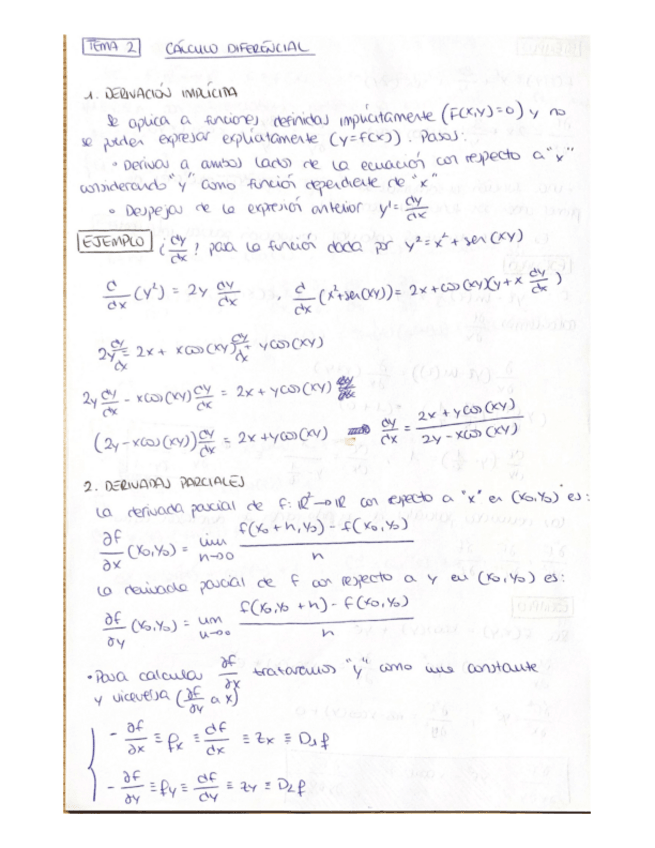 TEMA 2 CÁLCULO DIFERENCIAL
1. DERIVACIÓN IMPLÍCITA
Se aplica a funciones definidas implícitamente (F(x,y)=0) y no
se pueden expresar explícitamente (y=f(x)). Pasos:
• Derivar a ambos lados de la ecuación con respecto a "x"
considerando "y" como función dependiente de "x"
• Despejar de la expresión anterior y' = dy/dx
EJEMPLO ¿dy/dx? para la función dada por y² = x² + sen(xy)
d/dx (y²) = 2y dy/dx , d/dx (x²+sen(xy)) = 2x + cos(xy)(y + x dy/dx)
2y dy/dx = 2x + x cos(xy) dy/dx + y cos(xy)
2y dy/dx - x cos(xy) dy/dx = 2x + y cos(xy)
(2y - x cos(xy)) dy/dx = 2x + y cos(xy) ⇒ dy/dx = (2x + y cos(xy)) / (2y - x cos(xy))
2. DERIVADAS PARCIALES
La derivada parcial de f: ℝ² → ℝ con respecto a "x" en (x₀,y₀) es:
∂f/∂x (x₀,y₀) = lim h→0 (f(x₀+h, y₀) - f(x₀,y₀)) / h
La derivada parcial de f con respecto a y en (x₀,y₀) es:
∂f/∂y (x₀,y₀) = lim h→0 (f(x₀,y₀+h) - f(x₀,y₀)) / h
• Para calcular ∂f/∂x trataremos "y" como una constante
y viceversa (∂f/∂y a x)
- ∂f/∂x ≡ fx ≡ df/dx ≡ zx ≡ D₁f
- ∂f/∂y ≡ fy ≡ df/dy ≡ zy ≡ D₂f